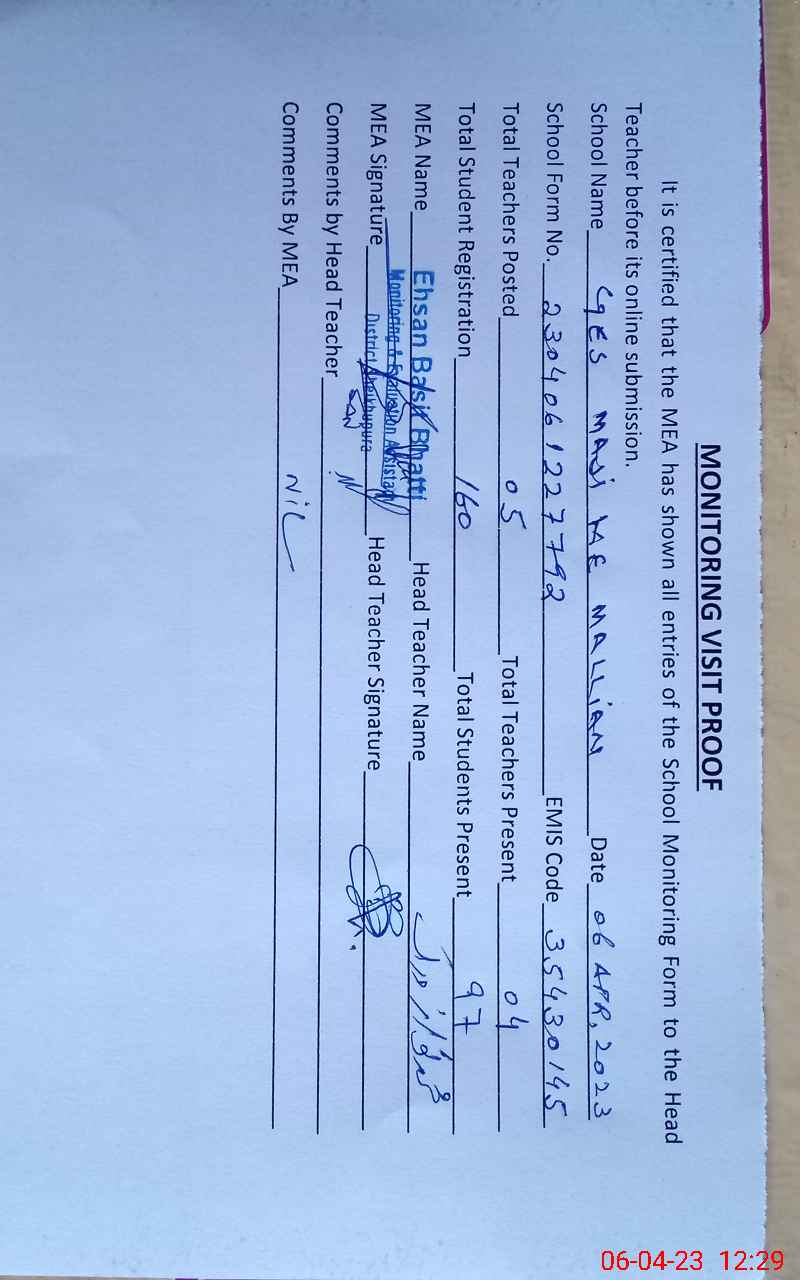 MONITORING VISIT PROOF
It is certified that the MEA has shown all entries of the School Monitoring Form to the Head
Teacher before its online submission.
School Name GES MAJi ME MALLiAN Date 06 APR, 2023
School Form No. 2304061227792 EMIS Code 35430145
Total Teachers Posted 05 Total Teachers Present 04
Total Student Registration 160 Total Students Present 97
MEA Name Ehsan Basit Bhatti Head Teacher Name
Monitoring & Evaluation Assistant
MEA Signature District Sheikhupura Head Teacher Signature
Comments by Head Teacher
Comments By MEA NiL
06-04-23 12:29